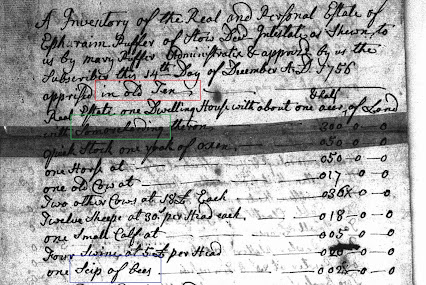 A Inventory of the Real and Personal Estate of
Ephraim Ruffer of Stow Decd Intestate as Shewn to
us by mary Ruffer Administratx & apprizd by us the
Subscribers this 14th Day of December A:D. 1756
apprisd in old Ten
Real Estate one Dwelling House with about one acre of Land
with thereon 300 — 0 — 0
Quick Stock one yoak of oxen, 050 — 0 — 0
one Horse at 050 — 0 — 0
one old Cow at 017 — 0 — 0
Two other Cows at 18 Each 036 — 0 — 0
Twelve Sheepe at 30s per Head each, 018 — 0 — 0
one Small Calf at 005 — 0 — 0
Four Swine at per Head 020 — 0 — 0
one Scip of Bees 002 — 0 — 0